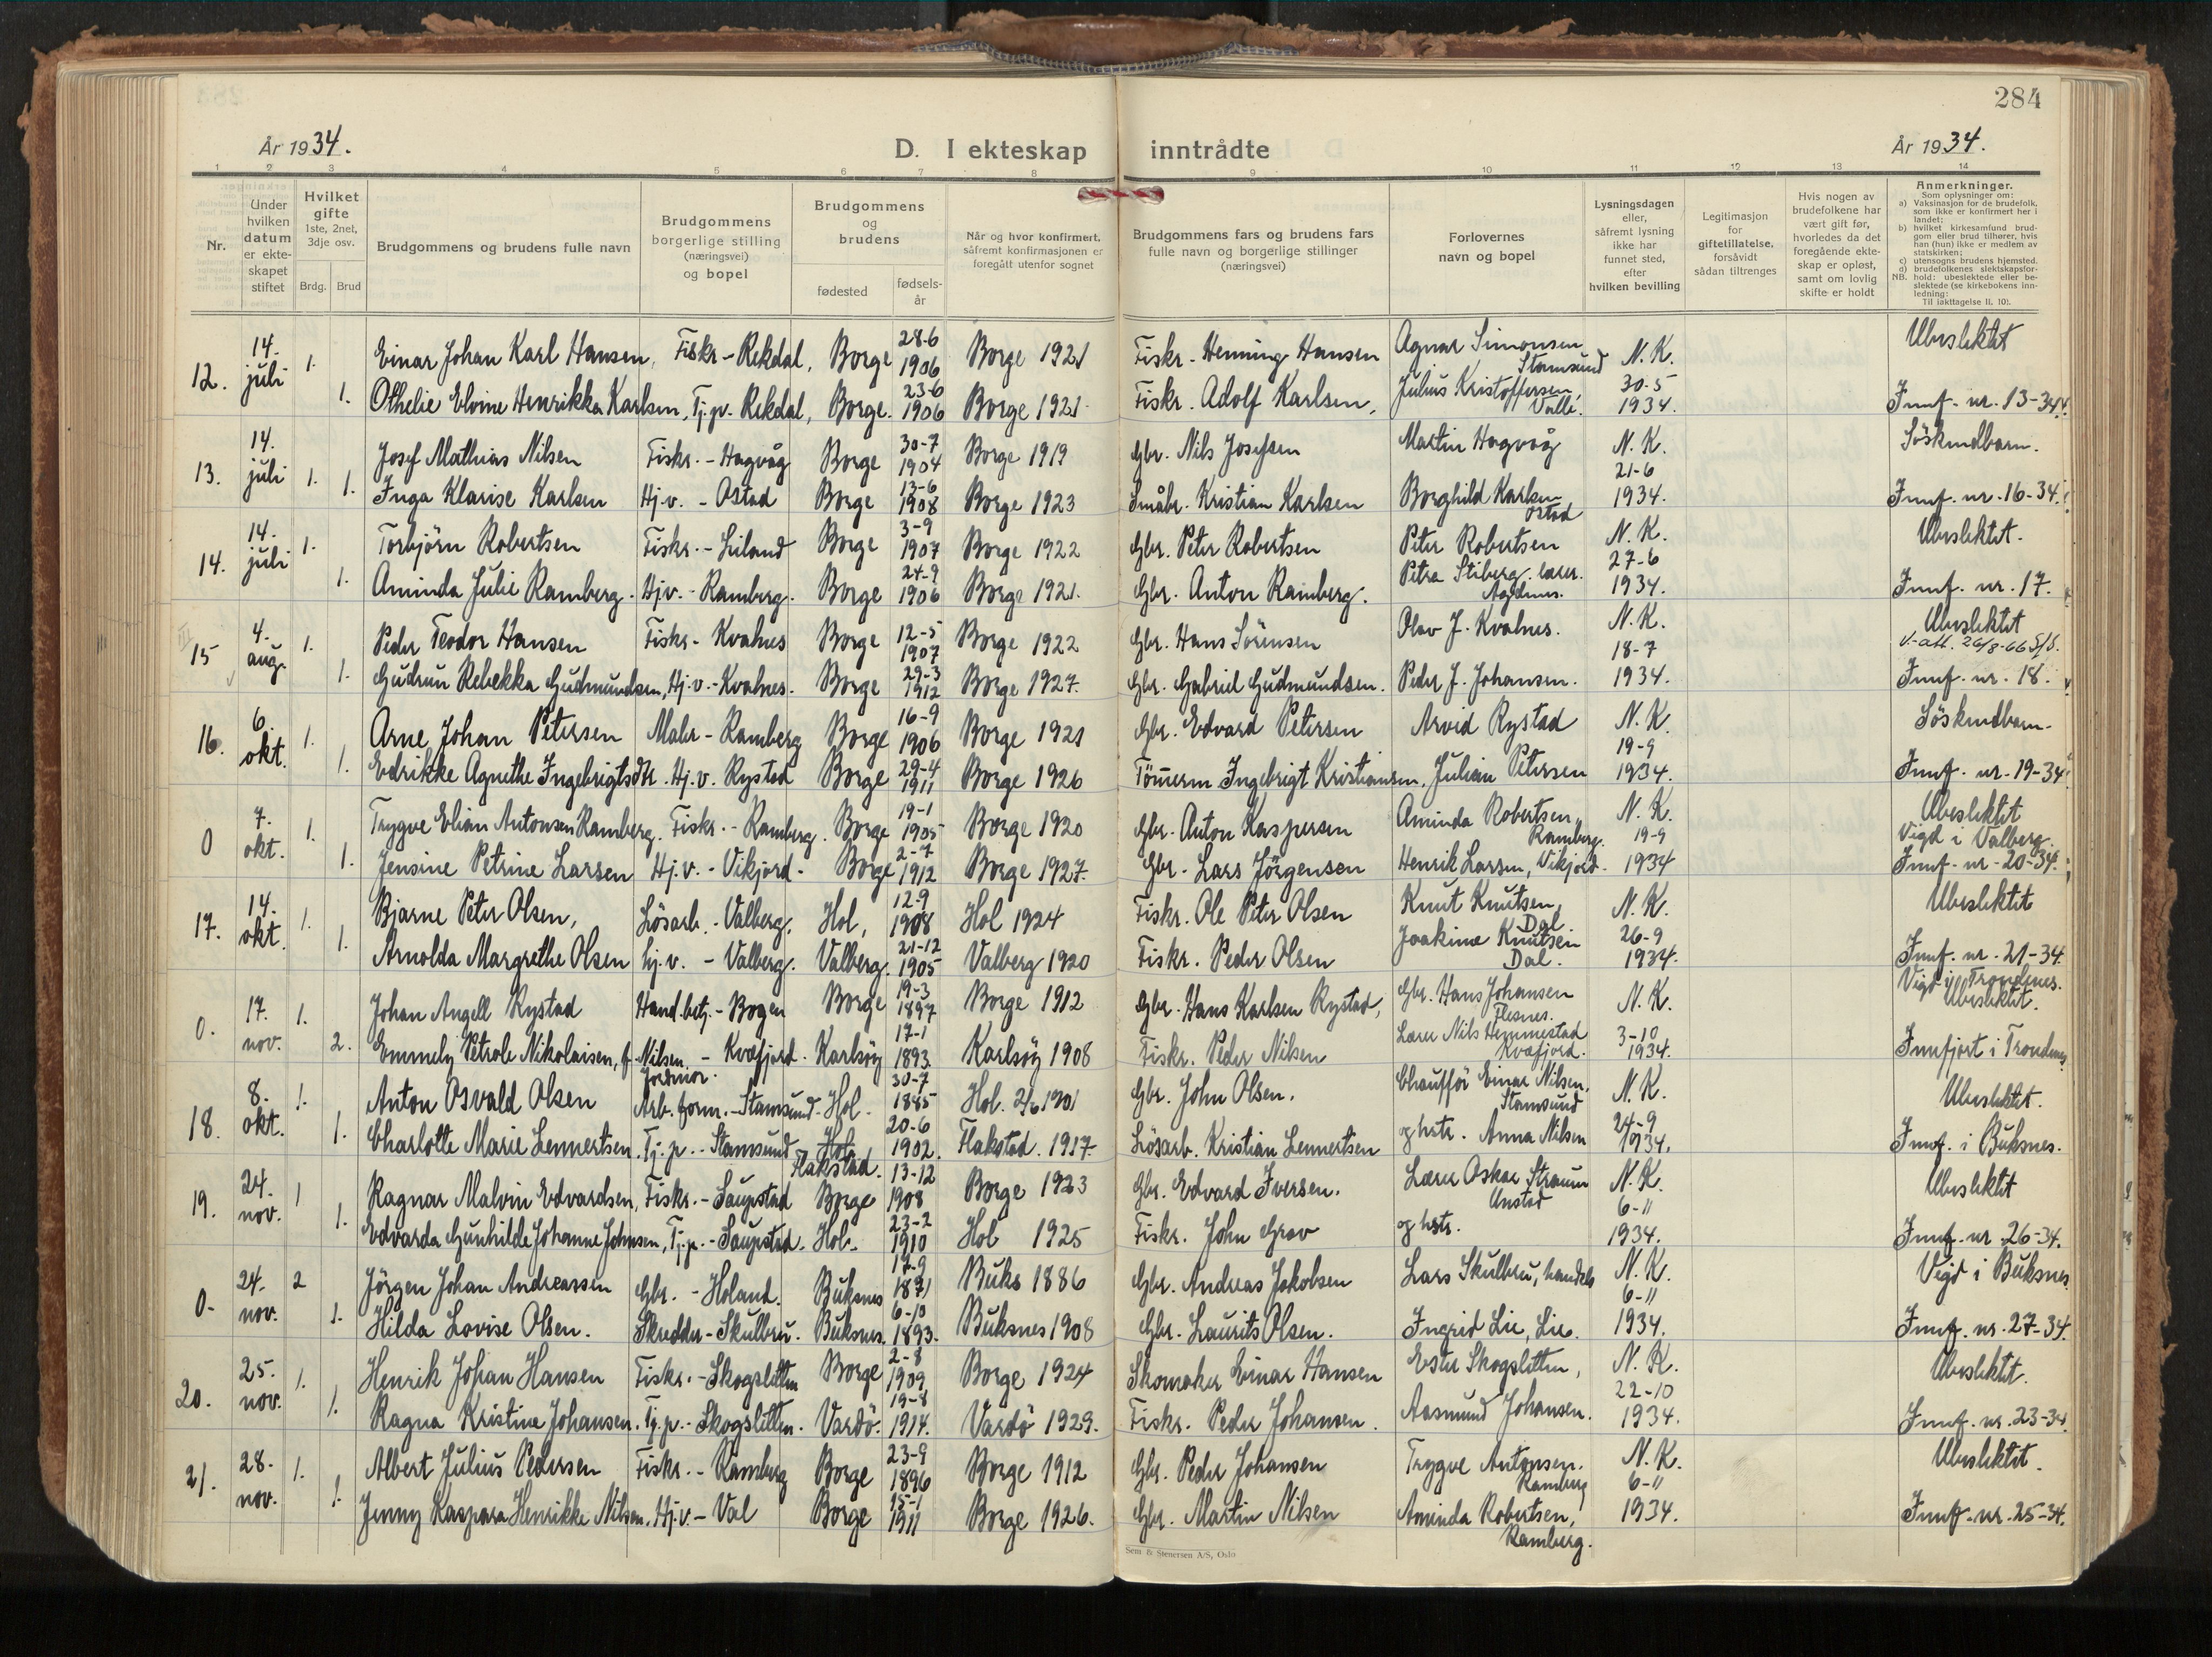 284
År 1934.
D. I ekteskap inntrådte
År 1934.
1 2 3 4 5 6 7 8 9 10 11 12 13 14
Nr.
Under hvilken datum er ekteskapet stiftet
Hvilket gifte 1ste, 2net, 3dje osv.
Brdg. Brud
Brudgommens og brudens fulle navn
Brudgommens borgerlige stilling (næringsvei) og bopel
Brudgommens og brudens
fødested
fødsels-år
Når og hvor konfirmert, såfremt konfirmasjonen er foregått utenfor sognet
Brudgommens fars og brudens fars fulle navn og borgerlige stillinger (næringsvei)
Forlovernes navn og bopel
Lysningsdagen eller, såfremt lysning ikke har funnet sted, efter hvilken bevilling
Legitimasjon for giftetillatelse, forsåvidt sådan tiltrenges
Hvis nogen av brudefolkene har vært gift før, hvorledes da det foregående ekteskap er opløst, samt om lovlig skifte er holdt
Anmerkninger.
Som oplysninger om:
a) Vaksinasjon for de brudefolk, som ikke er konfirmert her i landet;
b) hvilket kirkesamfund brudgom eller brud tilhører, hvis han (hun) ikke er medlem av statskirken;
c) utensogns brudens hjemsted.
d) brudefolkenes slektskapsforhold: ubeslektede eller beslektede (se kirkebokens innledning:
NB. Til iakttagelse II, 10).
12. 14. juli 1. Einar Johan Karl Hansen, Fiskr - Rekdal, Borge 28-6 1906 Borge 1921 Fiskr. Henning Hansen Agnar Simonsen Stamsund N.K. Ubeslektet
1. Othelie Elvine Henrikka Karlsen, Tj.p. Rekdal, Borge. 23-6 1906 Borge 1921 Fiskr. Adolf Karlsen, Julius Kristoffersen, Valle. 30-5 1934. Innf. nr. 13-34
13. 14. juli 1. Josef Mathias Nilsen Fiskr. - Hagvåg Borge 30-7 1904 Borge 1919 Gbr. Nils Josefsen Martin Hagvåg N.K. Söskendbarn.
1. Inga Klarise Karlsen Hj.v. - Ostad Borge 13-6 1908 Borge 1923 Småbr. Kristian Karlsen Borghild Karlsen Ostad 21-6 1934. Innf. nr. 16-34.
14. 14. juli 1. Torbjörn Robertsen Fiskr. - Liland Borge 3-9 1907 Borge 1922 Gbr. Peter Robertsen Peter Robertsen N.K. Ubeslektet.
1. Aminda Julie Ramberg. Hj.v. - Ramberg. Borge 24-9 1906 Borge 1921. Gbr. Anton Ramberg. Petra Stiberg. lærer. 27-6 1934. Innf. nr. 17.
15 4. aug. 1. Peder Teodor Hansen Fiskr - Kvalnes Borge 12-5 1907 Borge 1922 Gbr. Hans Sörensen Olav J. Kvalnes. N.K. Ubeslektet
v-att. 26/8-66
1. Gudrun Rebekka Gudmundsen, Hj.v. - Kvalnes. Borge 29-3 1912 Borge 1927. Gbr. Gabriel Gudmundsen. Peder J. Johansen. 18-7 1934. Innf. nr. 18.
16. 6. okt. 1. Arne Johan Petersen Maler - Ramberg Borge 16-9 1906 Borge 1921 Gbr. Edvard Petersen Arvid Rystad N.K. Söskendbarn.
1. Edrikke Agnethe Ingebrigtsdtr. Hj.v. Rystad Borge 29-4 1911 Borge 1926 Tömerm Ingebrigt Kristiansen, Julian Petersen 19-9 1934. Innf. nr. 19-34
0 7. okt. 1. Trygve Elian Antonsen Ramberg. Fiskr. - Ramberg. Borge 19-1 1905 Borge 1920 Gbr. Anton Kaspersen Aminda Robertsen, Ramberg. N.K. Ubeslektet
Vigd i Valberg.
1. Jensine Petrine Larsen Hj.v. - Vikjord - Borge 2-7 1912 Borge 1927. Gbr. Lars Jörgensen Henrik Larsen, Vikjord. 19-9 1934 Innf. nr. 20-34.
17. 14. okt. 1. Bjarne Peter Olsen, Lösarb. - Valberg. Hol, 12-9 1908 Hol 1924 Fiskr. Ole Peter Olsen Knut Knutsen, Dal. N.K. Ubeslektet
1. Arnolda Margrethe Olsen hj.v. - Valberg. Valberg. 21-12 1905 Valberg 1920 Fiskr. Peder Olsen Joakime Knutsen Dal. 26-9 1934. Innf. nr. 21-34.
0. 17. nov. 1. Johan Angell Rystad Hand.betj. - Bogen Borge 19-3 1897 Borge 1912 Gbr. Hans Karlsen Rystad, Gbr. Hans Johansen Flesnes. N.K. Vigd i Trondenes. Ubeslektet.
2. Emmely Petrole Nikolaisen, f. Nilsen - Kvæfjord. Jordmor. Karlsöy 17-1 1893. Karlsöy 1908 Fiskr. Peder Nilsen Lærer Nils Hemmestad Kvæfjord. 3-10 1934. Innfjørt i Trondenes
18. 8. okt. 1. Anton Osvald Olsen Arb.form. - Stamsund. Hol. 30-7 1885 Hol. 2/6 1901 Gbr. John Olsen. Chaufför Einar Nilsen, Stamsund N.K. Ubeslektet.
1. Charlotte Marie Lennertsen. Tj.p. - Stamsund Hol Flakstad. 20-6 1902. Flakstad. 1917. Lösarb. Kristian Lennertsen og hstr. Anna Nilsen 24-9 1934. Innf. i Buksnes.
19. 24. nov. 1 Ragnar Malvin Edvardsen, Fiskr. - Saupstad Borge 13-12 1908 Borge 1923 Gbr. Edvard Iversen. Lærer Oskar Straum Unstad N.K. Ubeslektet
1. Edvarda Gunhilde Johanne Johnsen, Tj.p. - Saupstad. Hol. 23-2 1910 Hol 1925 Fiskr. John Grav og hstr. 6-11 1934. Innf. nr. 26-34.
0. 24. nov. 2 Jörgen Johan Andreassen Gbr. - Holand. Buksnes 17-9 1871 Buks 1886 Gbr. Andreas Jakobsen Lars Skulbru, handels N.K. Vigd i Buksnes
1. Hilda Lovise Olsen. Skredder - Skulbru. Buksnes. 6-10 1893. Buksnes 1908 Gbr. Laurits Olsen. Ingrid Lie, Lie. 6-11 1934. Innf. nr. 27-34.
20. 25. nov. 1. Henrik Johan Hansen Fiskr. - Skogsletten Borge 2-8 1909 Borge 1924 Skomaker Einar Hansen Ester Skogsletten, N.K. Ubeslektet.
1. Ragna Kristine Johansen. Tj.p. - Skogsletten. Vardö. 19-8 1914. Vardö 1929. Fiskr. Peder Johansen. Aasmund Johansen. 22-10 1934. Innf. nr. 23-34
21. 28. nov. 1. Albert Julius Pedersen Fiskr. - Ramberg Borge 23-9 1896 Borge 1912 Gbr. Peder Johansen Trygve Antonsen. Ramberg N.K. Ubeslektet.
1. Jenny Kaspara Henrikke Nilsen. Hj.v. - Val Borge 15-1 1911 Borge 1926. Gbr. Martin Nilsen Aminda Robertsen, Ramberg. 6-11 1934. Innf. nr. 25-34.
Sem & Stenersen A/S, Oslo